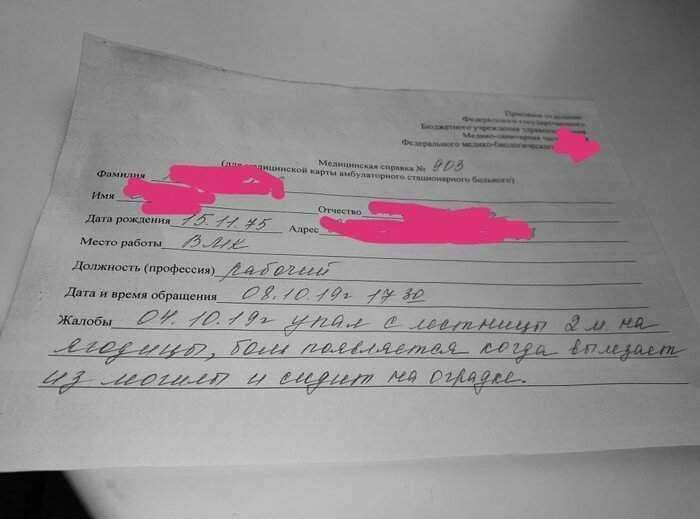 Приемное отделение
Федерального государственного
Бюджетного учреждения здравоохранения
Медико-санитарная
Федерального медико-биологического
Медицинская справка № 903
(для медицинской карты амбулаторного стационарного больного)
Фамилия
Имя Отчество
Дата рождения 15.11.75 Адрес
Место работы ВМК
Должность (профессия) рабочий
Дата и время обращения 08.10.19г 17 30
Жалобы 04.10.19г упал с лестницы 2 м. на
ягодицы, боль появляется когда вылезает
из могилы и сидит на оградке.